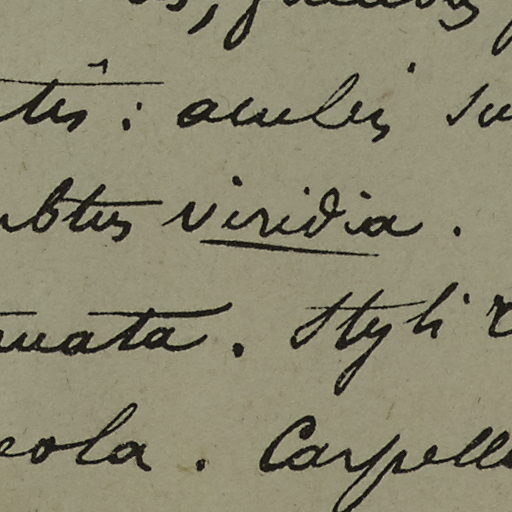 tis : aculeis su
ubtus viridia .
nuata . Styli
eola . Carpell